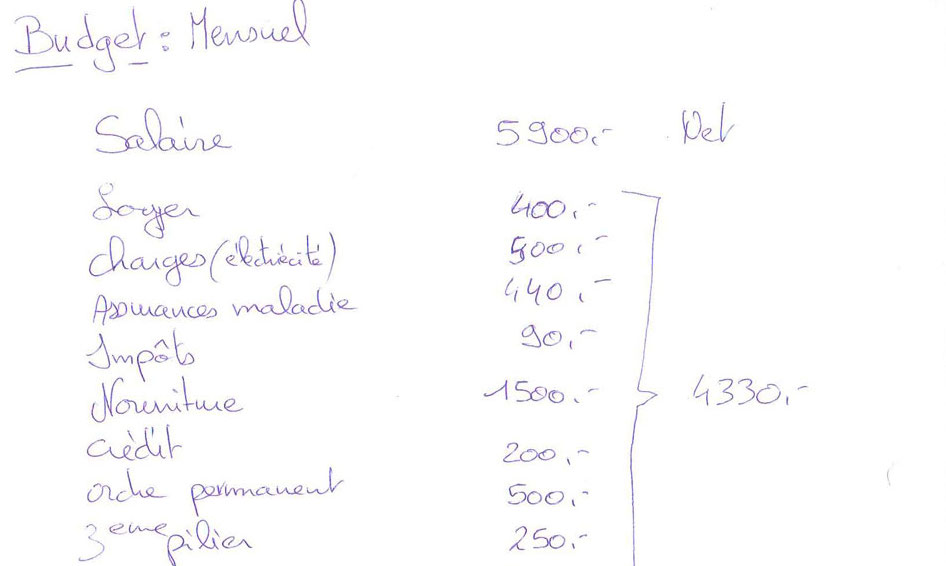 Budget : Mensuel
Salaire 5900.- Net
Loyer 400.-
Charges (éléctricité) 500.-
Assurances maladie 440.-
Impôts 90.-
Nourriture 1500.- 4330.-
Crèdit 200.-
ordre permanent 500.-
3eme pilier 250.-